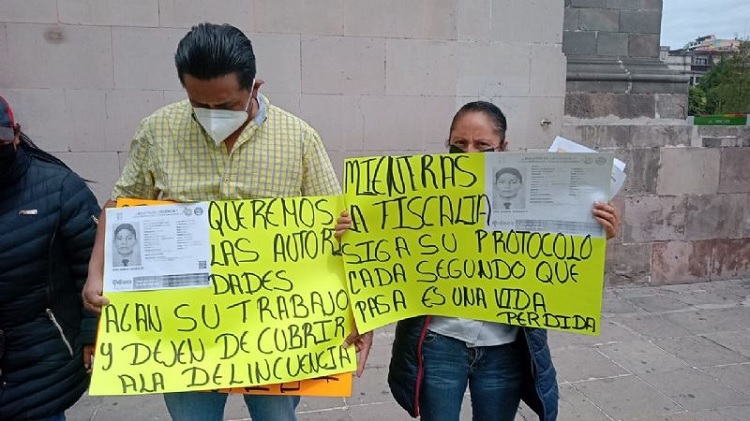 QUEREMOS
LAS AUTORI
DADES
AGAN SU TRABAJO
Y DEJEN DE CUBRIR
A LA DELINCUENCIA
MIENTRAS
LA FISCALIA
SIGA SU PROTOCOLO
CADA SEGUNDO QUE
PASA ES UNA VIDA
PERDIDA